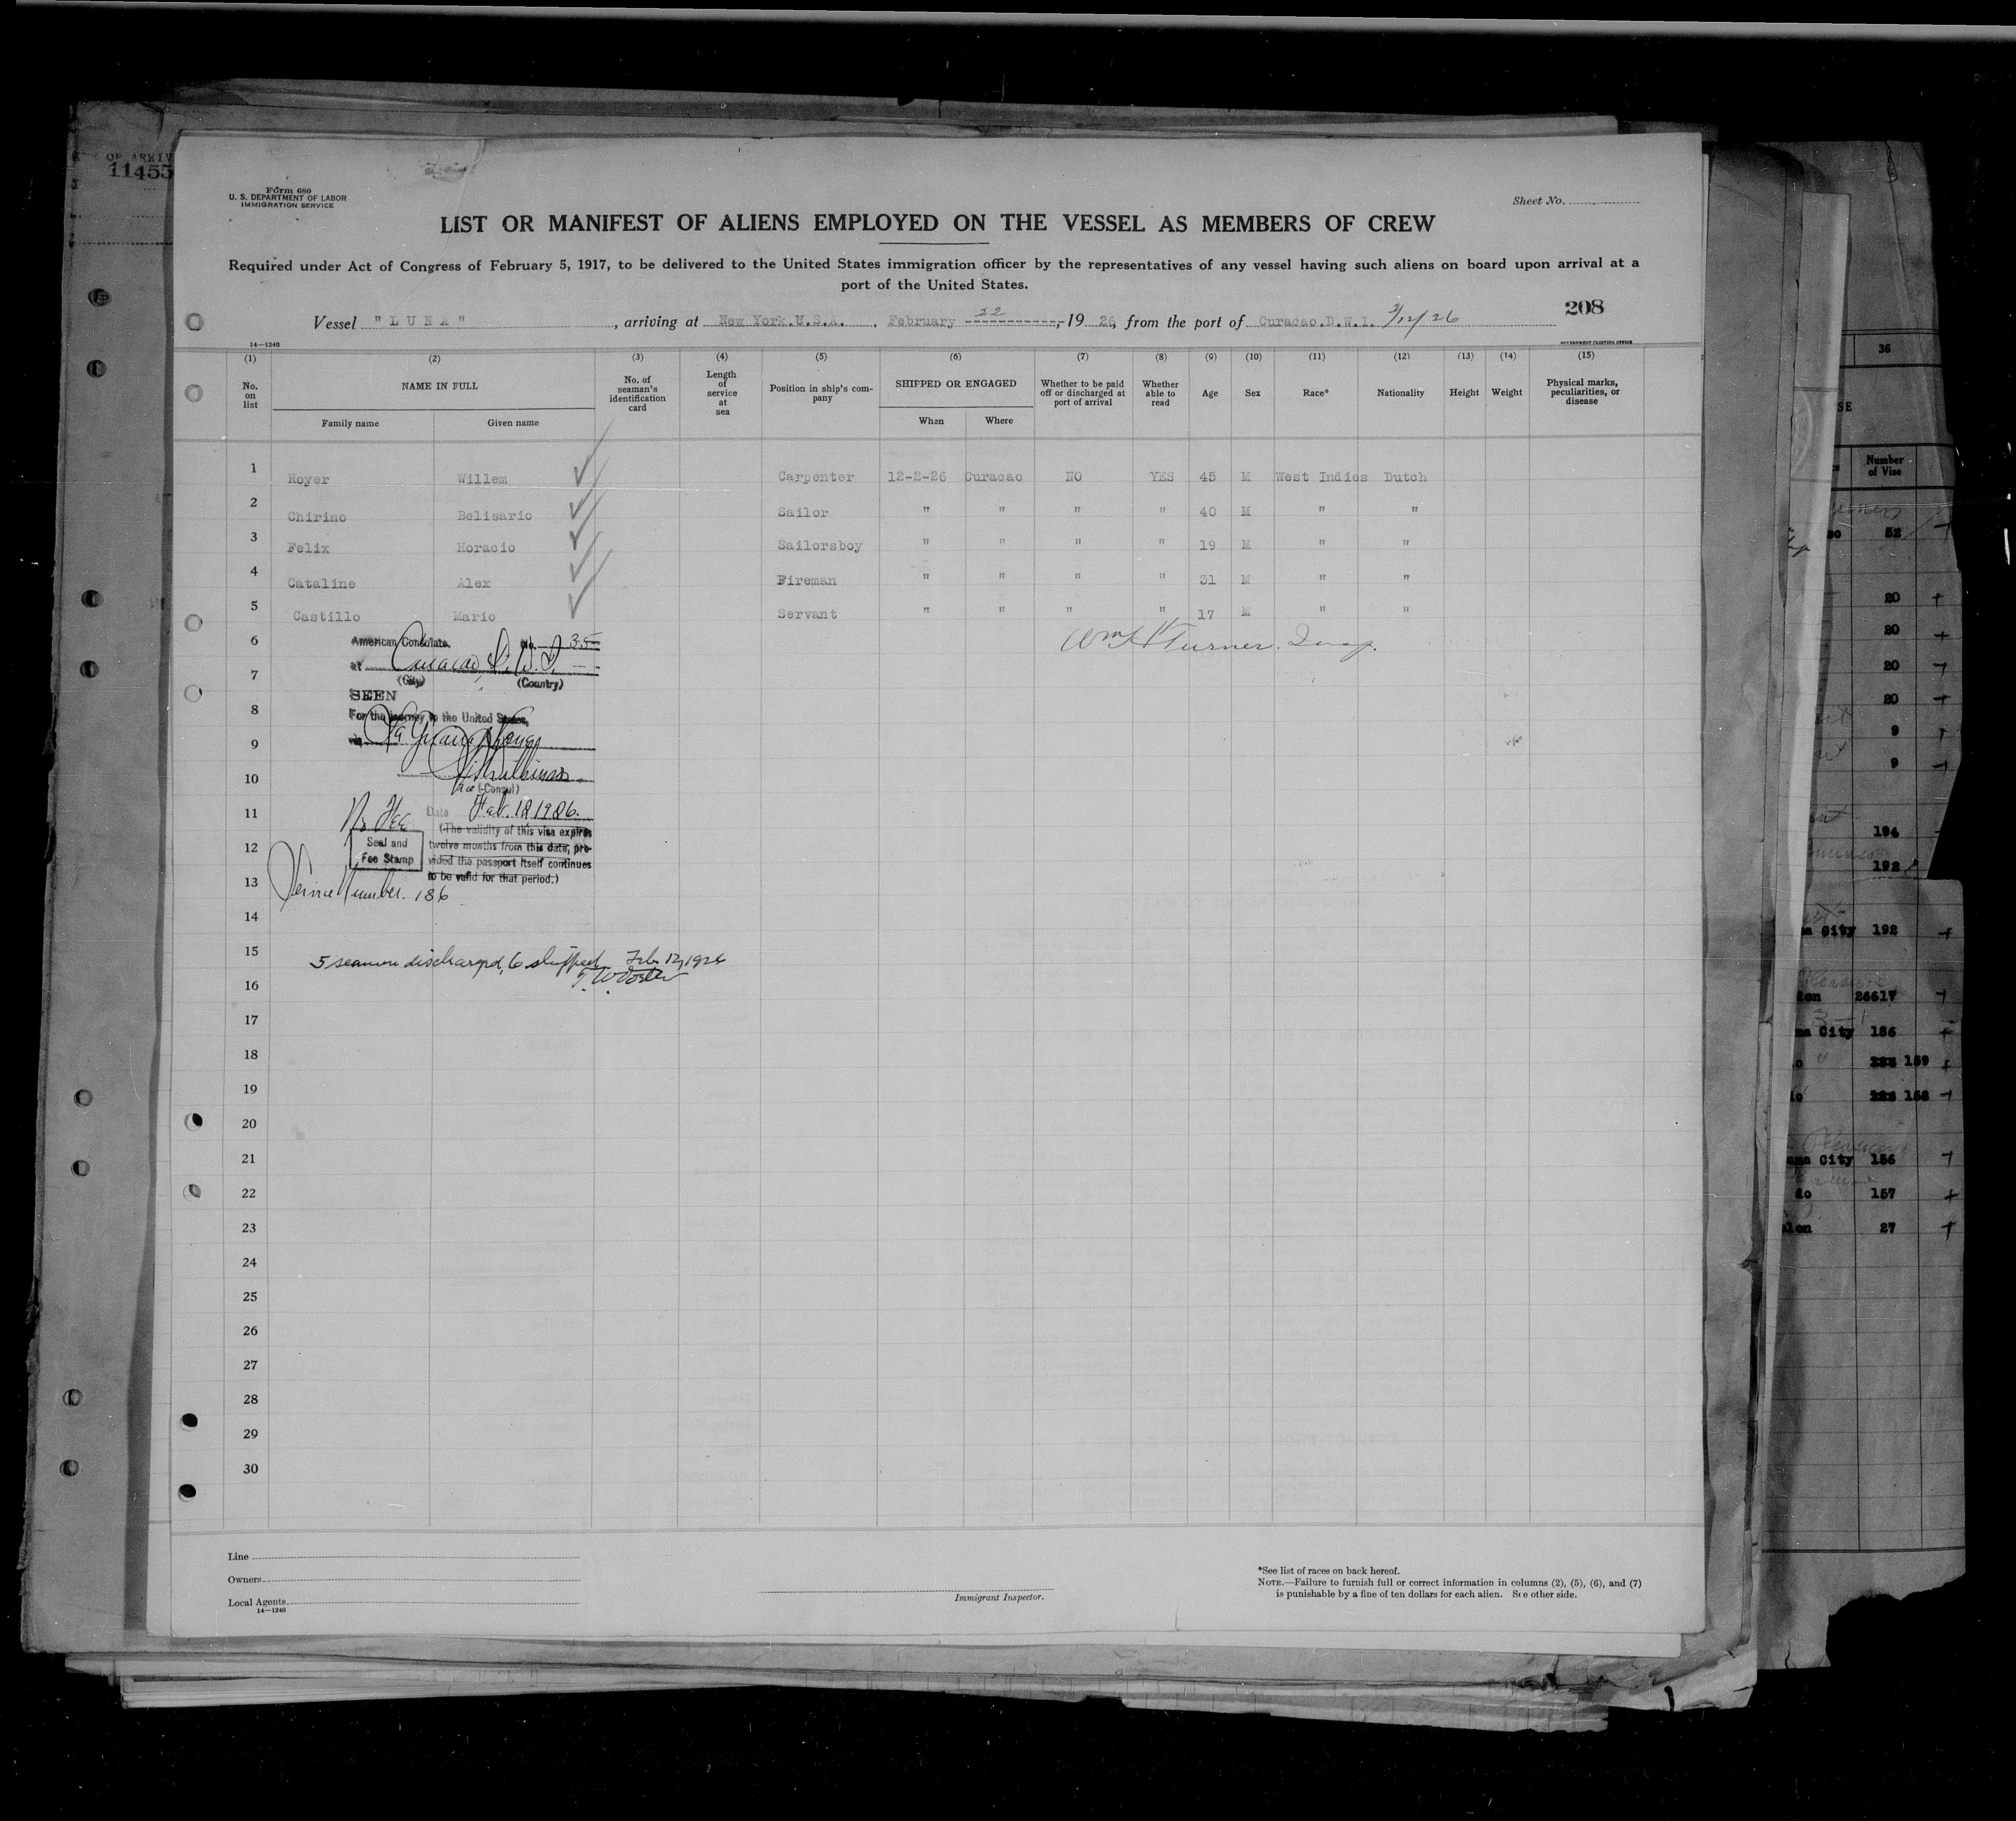 OF ARRIV
11455
Form 680
U. S. DEPARTMENT OF LABOR
IMMIGRATION SERVICE
Sheet No.
LIST OR MANIFEST OF ALIENS EMPLOYED ON THE VESSEL AS MEMBERS OF CREW
Required under Act of Congress of February 5, 1917, to be delivered to the United States immigration officer by the representatives of any vessel having such aliens on board upon arrival at a
port of the United States.
208
Vessel "LUNA", arriving at New York.U.S.A., February 22, 1926, from the port of Curacao.D.W.I. 2/12/26
14—1240
GOVERNMENT PRINTING OFFICE
(1) (2) (3) (4) (5) (6) (7) (8) (9) (10) (11) (12) (13) (14) (15)
No. on list
NAME IN FULL
Family name Given name
No. of seaman's identification card
Length of service at sea
Position in ship's company
SHIPPED OR ENGAGED
When Where
Whether to be paid off or discharged at port of arrival
Whether able to read
Age Sex Race* Nationality Height Weight
Physical marks, peculiarities, or disease
1 Royer Willem Carpenter 12-2-26 Curacao NO YES 45 M West Indies Dutch
2 Chirino Belisario Sailor " " " " 40 M " "
3 Felix Horacio Sailorsboy " " " " 19 M " "
4 Cataline Alex Fireman " " " " 31 M " "
5 Castillo Mario Servant " " " " 17 M " "
Wm H Turner. Insp.
6 American Consulate No. 35
at Curacao, D.W.I.
7 (City) (Country)
SEEN
8 For the journey to the United States,
9 via
10
(Consul)
11 No Fee Date Feb. 12 1926.
(The validity of this visa expires
12 Seal and Fee Stamp twelve months from this date, provided the passport itself continues
13 to be valid for that period.)
Service Number. 186
14
15 5 seamen discharged, 6 shipped Feb 12, 1926
16
17
18
19
20
21
22
23
24
25
26
27
28
29
30
Line
Owners
Local Agents
14—1240
Immigrant Inspector.
*See list of races on back hereof.
NOTE.—Failure to furnish full or correct information in columns (2), (5), (6), and (7)
is punishable by a fine of ten dollars for each alien. See other side.
36
SE
Number of Vise
52
20
20
20
20
9
9
194
192
a City 192
26617
ma City 186
159
158
ama City 156
do 157
lon 27